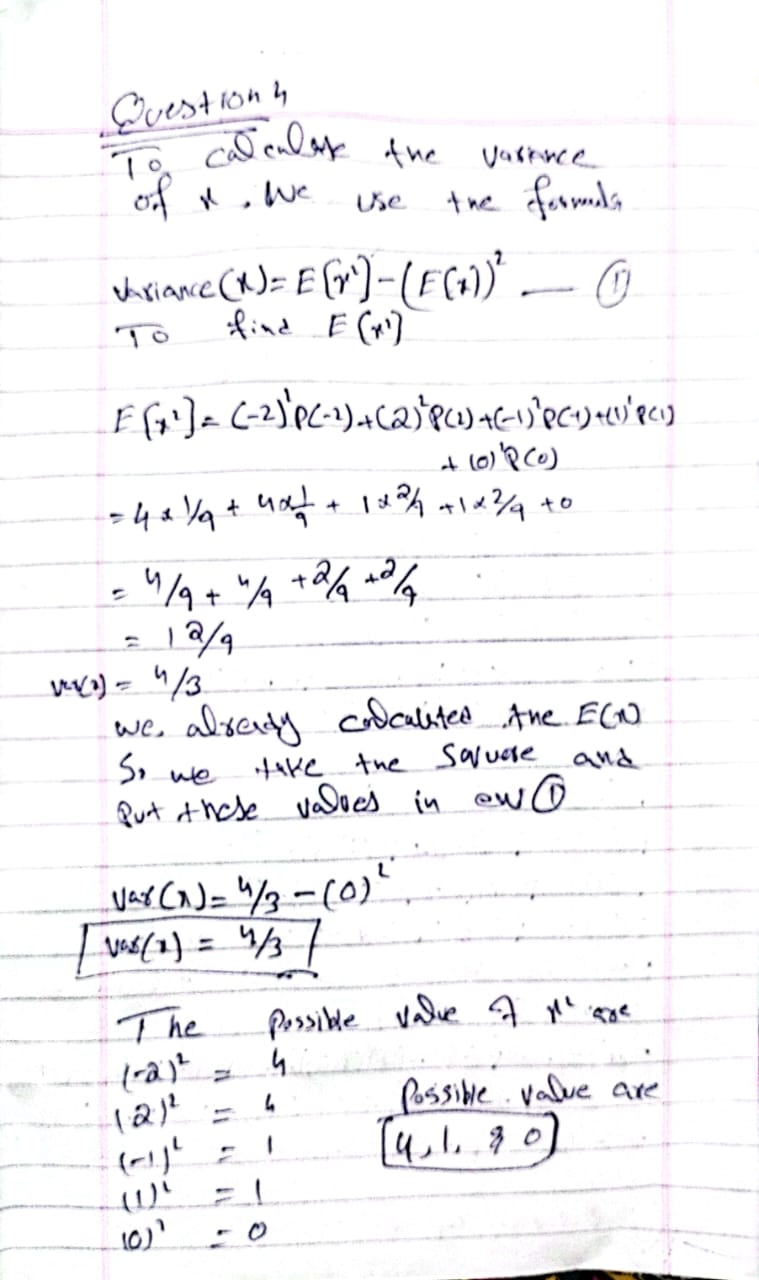 Question 4
To calculate the variance
of x. We use the formula
Variance(x)= E[x²]-(E(x))² — ①
To find E[x²]
E[x²]= (-2)²P(-2)+(2)²P(2)+(-1)²P(-1)+(1)²P(1)
+ (0)²P(0)
=4x1/9 + 4x1/9 + 1x2/9 +1x2/9 +0
= 4/9 + 4/9 +2/9 +2/9
= 12/9
var(x) = 4/3
we already calculated the E(x)
So we take the Square and
Put these values in ①
var(x)= 4/3 -(0)²
var(x) = 4/3
The possible value of x² are
(-2)² = 4
(2)² = 4
Possible value are
(-1)² = 1
4, 1, & 0
(1)² = 1
(0)² = 0